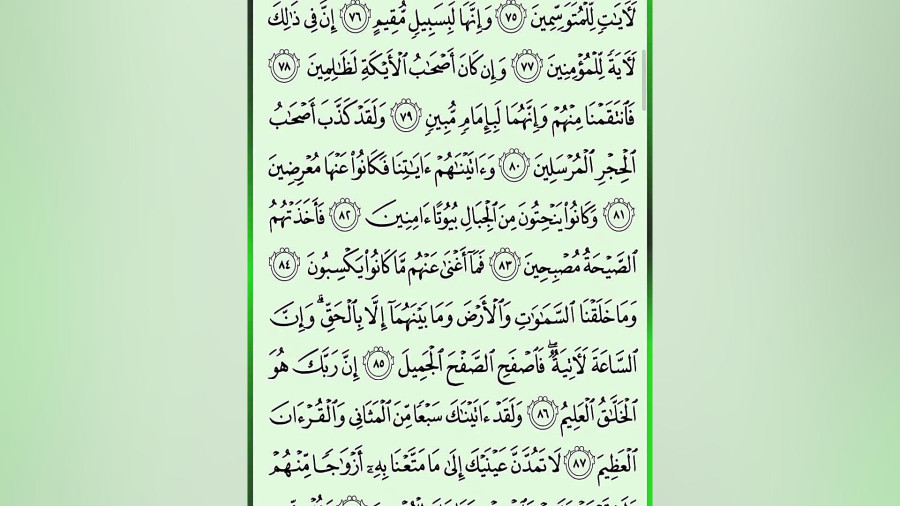 لَأٓيَٰتٖ لِّلۡمُتَوَسِّمِينَ ٧٥ وَإِنَّهَا لَبِسَبِيلٖ مُّقِيمٍ ٧٦ إِنَّ فِي ذَٰلِكَ
لَأٓيَةٗ لِّلۡمُؤۡمِنِينَ ٧٧ وَإِن كَانَ أَصۡحَٰبُ ٱلۡأَيۡكَةِ لَظَٰلِمِينَ ٧٨
فَٱنتَقَمۡنَا مِنۡهُمۡ وَإِنَّهُمَا لَبِإِمَامٖ مُّبِينٖ ٧٩ وَلَقَدۡ كَذَّبَ أَصۡحَٰبُ
ٱلۡحِجۡرِ ٱلۡمُرۡسَلِينَ ٨٠ وَءَاتَيۡنَٰهُمۡ ءَايَٰتِنَا فَكَانُواْ عَنۡهَا مُعۡرِضِينَ
٨١ وَكَانُواْ يَنۡحِتُونَ مِنَ ٱلۡجِبَالِ بُيُوتًا ءَامِنِينَ ٨٢ فَأَخَذَتۡهُمُ
ٱلصَّيۡحَةُ مُصۡبِحِينَ ٨٣ فَمَآ أَغۡنَىٰ عَنۡهُم مَّا كَانُواْ يَكۡسِبُونَ ٨٤
وَمَا خَلَقۡنَا ٱلسَّمَٰوَٰتِ وَٱلۡأَرۡضَ وَمَا بَيۡنَهُمَآ إِلَّا بِٱلۡحَقِّۗ وَإِنَّ
ٱلسَّاعَةَ لَأٓتِيَةٞۖ فَٱصۡفَحِ ٱلصَّفۡحَ ٱلۡجَمِيلَ ٨٥ إِنَّ رَبَّكَ هُوَ
ٱلۡخَلَّٰقُ ٱلۡعَلِيمُ ٨٦ وَلَقَدۡ ءَاتَيۡنَٰكَ سَبۡعٗا مِّنَ ٱلۡمَثَانِي وَٱلۡقُرۡءَانَ
ٱلۡعَظِيمَ ٨٧ لَا تَمُدَّنَّ عَيۡنَيۡكَ إِلَىٰ مَا مَتَّعۡنَا بِهِۦٓ أَزۡوَٰجٗا مِّنۡهُمۡ